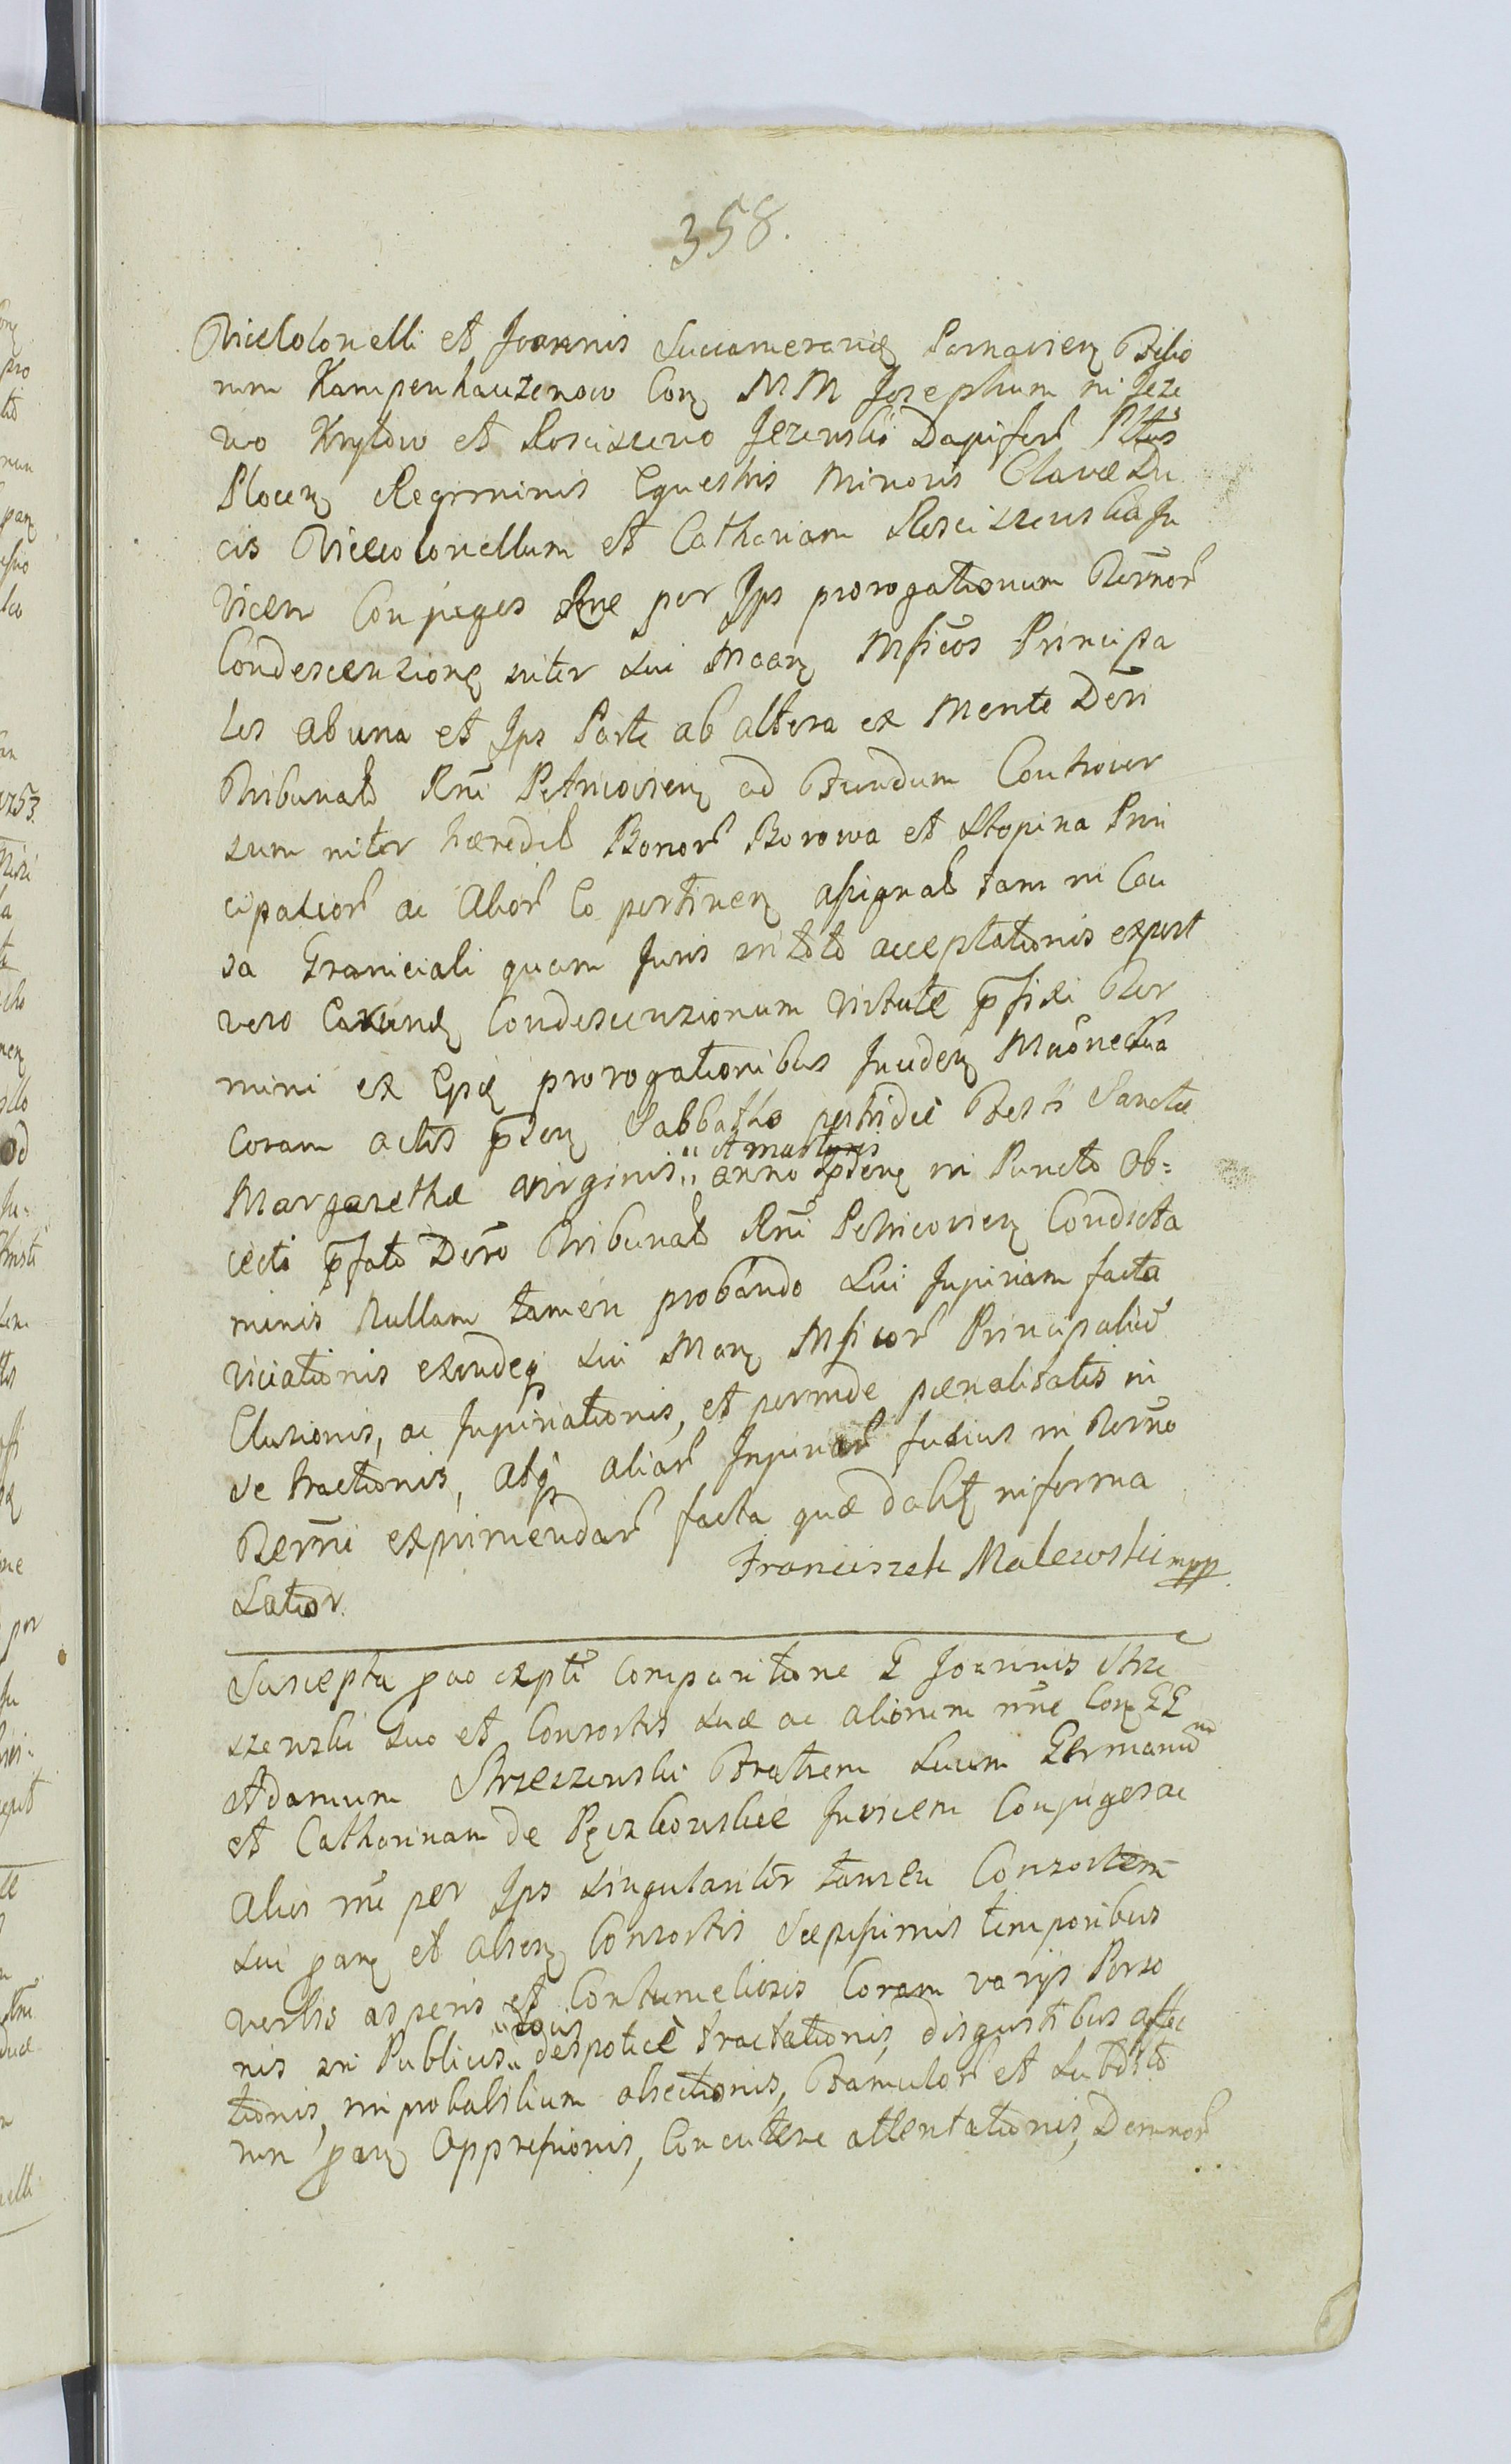 358.
Vicecolonelli et Joannis Succamerarię Parnavienę Filio
rum Kampenhauzenow Conę MM Josephum in Jeze
wo Krytow et Rosciszewo Jezewski Dapiferũ Pltus
Plocenę Regiminis Equestris Minoris Clavæ Du
cis Vicecolonellum et Catharinam Rosciszewska In
vicem Conjuges Rne per Jps prorogationum Termorũ
Condescensionę inter Sui Maenę Mficos Principa
les ab una et Jps Parte ab altera ex Mente Dẽri
Tribunalʒ Rñi Petricovienę ad Fundum Controver
sum inter hæredilʒ Bonorũ Borowa et Stopina Prin
cipaliorũ ac Aliorũ Eo pertinenę assignalʒ tam in Cau
sa Graniciali quam Juris in toto acceptationis expost
vero Earundę Condescensionum virtute p̃fixi Ter
mini ex Epię prorogationibus Incidenę Muõneq̃ sua
coram actis p̃senę Sabbatho postridie Festi Sanctæ
Margarethæ Virginis " et martyris " anno p̃senę in Puncto Ob=
jecti p̃fato Dẽro Tribunalʒ Rñi Petricovienę Condicta
minis Nullam tamen probando Sui Injuriam facta
viciationis exindeq̃ Sui Manę Mficorũ Principaliũ
Elusionis, ac Injuriationis, et perinde pænalitatis in
se tractionis, atq̃ aliarũ Injuriarũ fusius in Termo
Termi exprimendarũ facta quæ dabitę informa
Latior.
Franciszek Malewski mpp
Suscepta pao exptĩ Comparitione G Joannis Strze
szewski suo et Consortis suæ ac aliorum nne Conę GG
Adamum Strzeszewski Fratrem Suum Germanũ
et Catharinam de Pęczkowskie Invicem Conjuges ac
alios rñe per Jps singulariter tamen Consortem
Sui panę et absenę Consortis Sæpissimis temporibus
verbis asperis et Contumeliosis Coram varijs Perso
nis in Publicis " Locis " despotice tractationis, disgustibus affec
tionis, improbabilium objectionis, Famulorũ et Subdito
rum panę Oppressionis, Concutere attentationis, Damnorũ